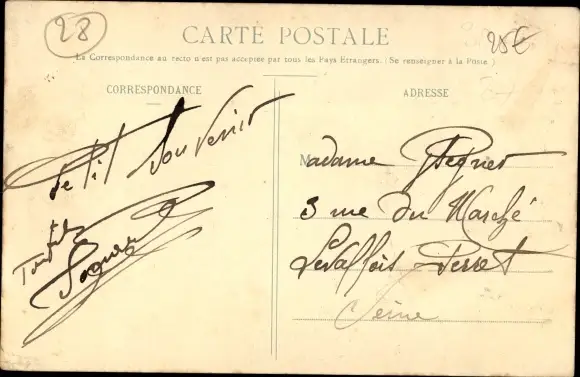 28
CARTE POSTALE
25€
La Correspondance au recto n'est pas acceptée par tous les Pays Etrangers. (Se renseigner à la Poste)
CORRESPONDANCE
Petit Souvenir
ADRESSE
Madame
3 rue du Marché
Levallois Perret
Seine